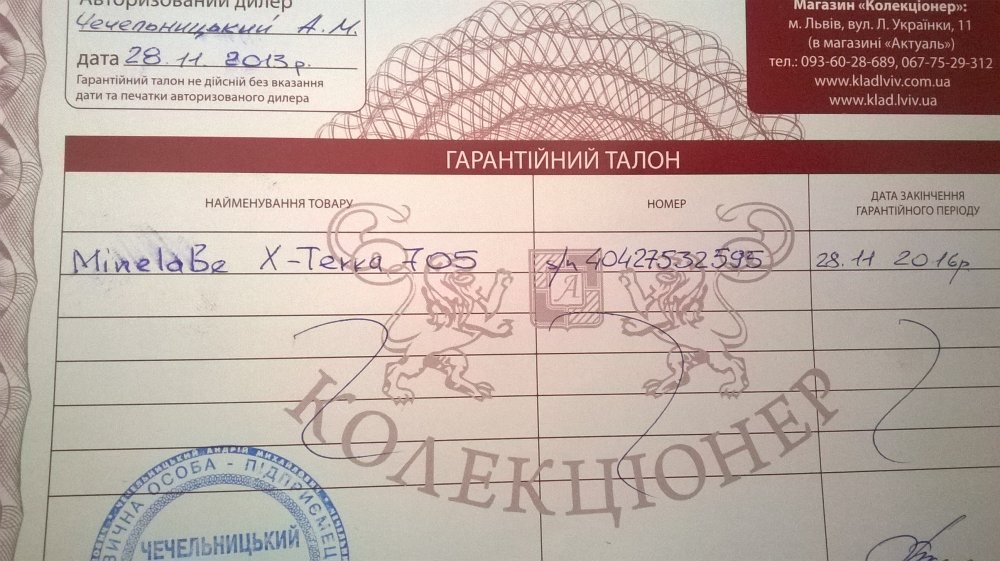 Авторизований дилер
Чечельницький А.М.
дата 28.11 2013р.
Гарантійний талон не дійсній без вказання
дати та печатки авторизованого дилера
Магазин «Колекціонер»:
м. Львів, вул. Л. Українки, 11
(в магазині «Актуаль»)
тел.: 093-60-28-689, 067-75-29-312
www.kladlviv.com.ua
www.klad.lviv.ua
ГАРАНТІЙНИЙ ТАЛОН
НАЙМЕНУВАННЯ ТОВАРУ
НОМЕР
ДАТА ЗАКІНЧЕННЯ
ГАРАНТІЙНОГО ПЕРІОДУ
MinelaBe X-Terra 705
s/n 40427532595
28.11 2016р.
А
КОЛЕКЦІОНЕР
ЧЕЧЕЛЬНИЦЬКИЙ АНДРІЙ МИХАЙЛОВИЧ
ФІЗИЧНА ОСОБА - ПІДПРИЄМЕЦЬ
ЧЕЧЕЛЬНИЦЬКИЙ